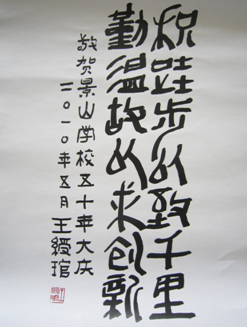 积跬步以致千里
勤温故以求创新
敬贺景山学校五十年大庆
二〇一〇年五月 王绶琯